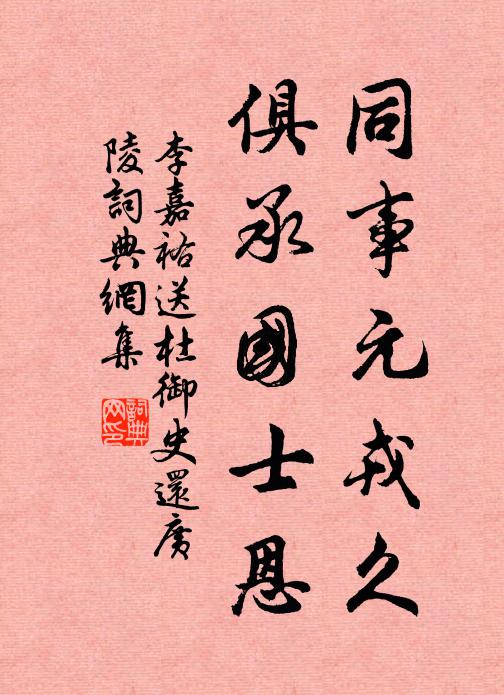 同事元戎久
俱承國士恩
李嘉裕送杜御史還廣
陵詞典網集
詞典
网印